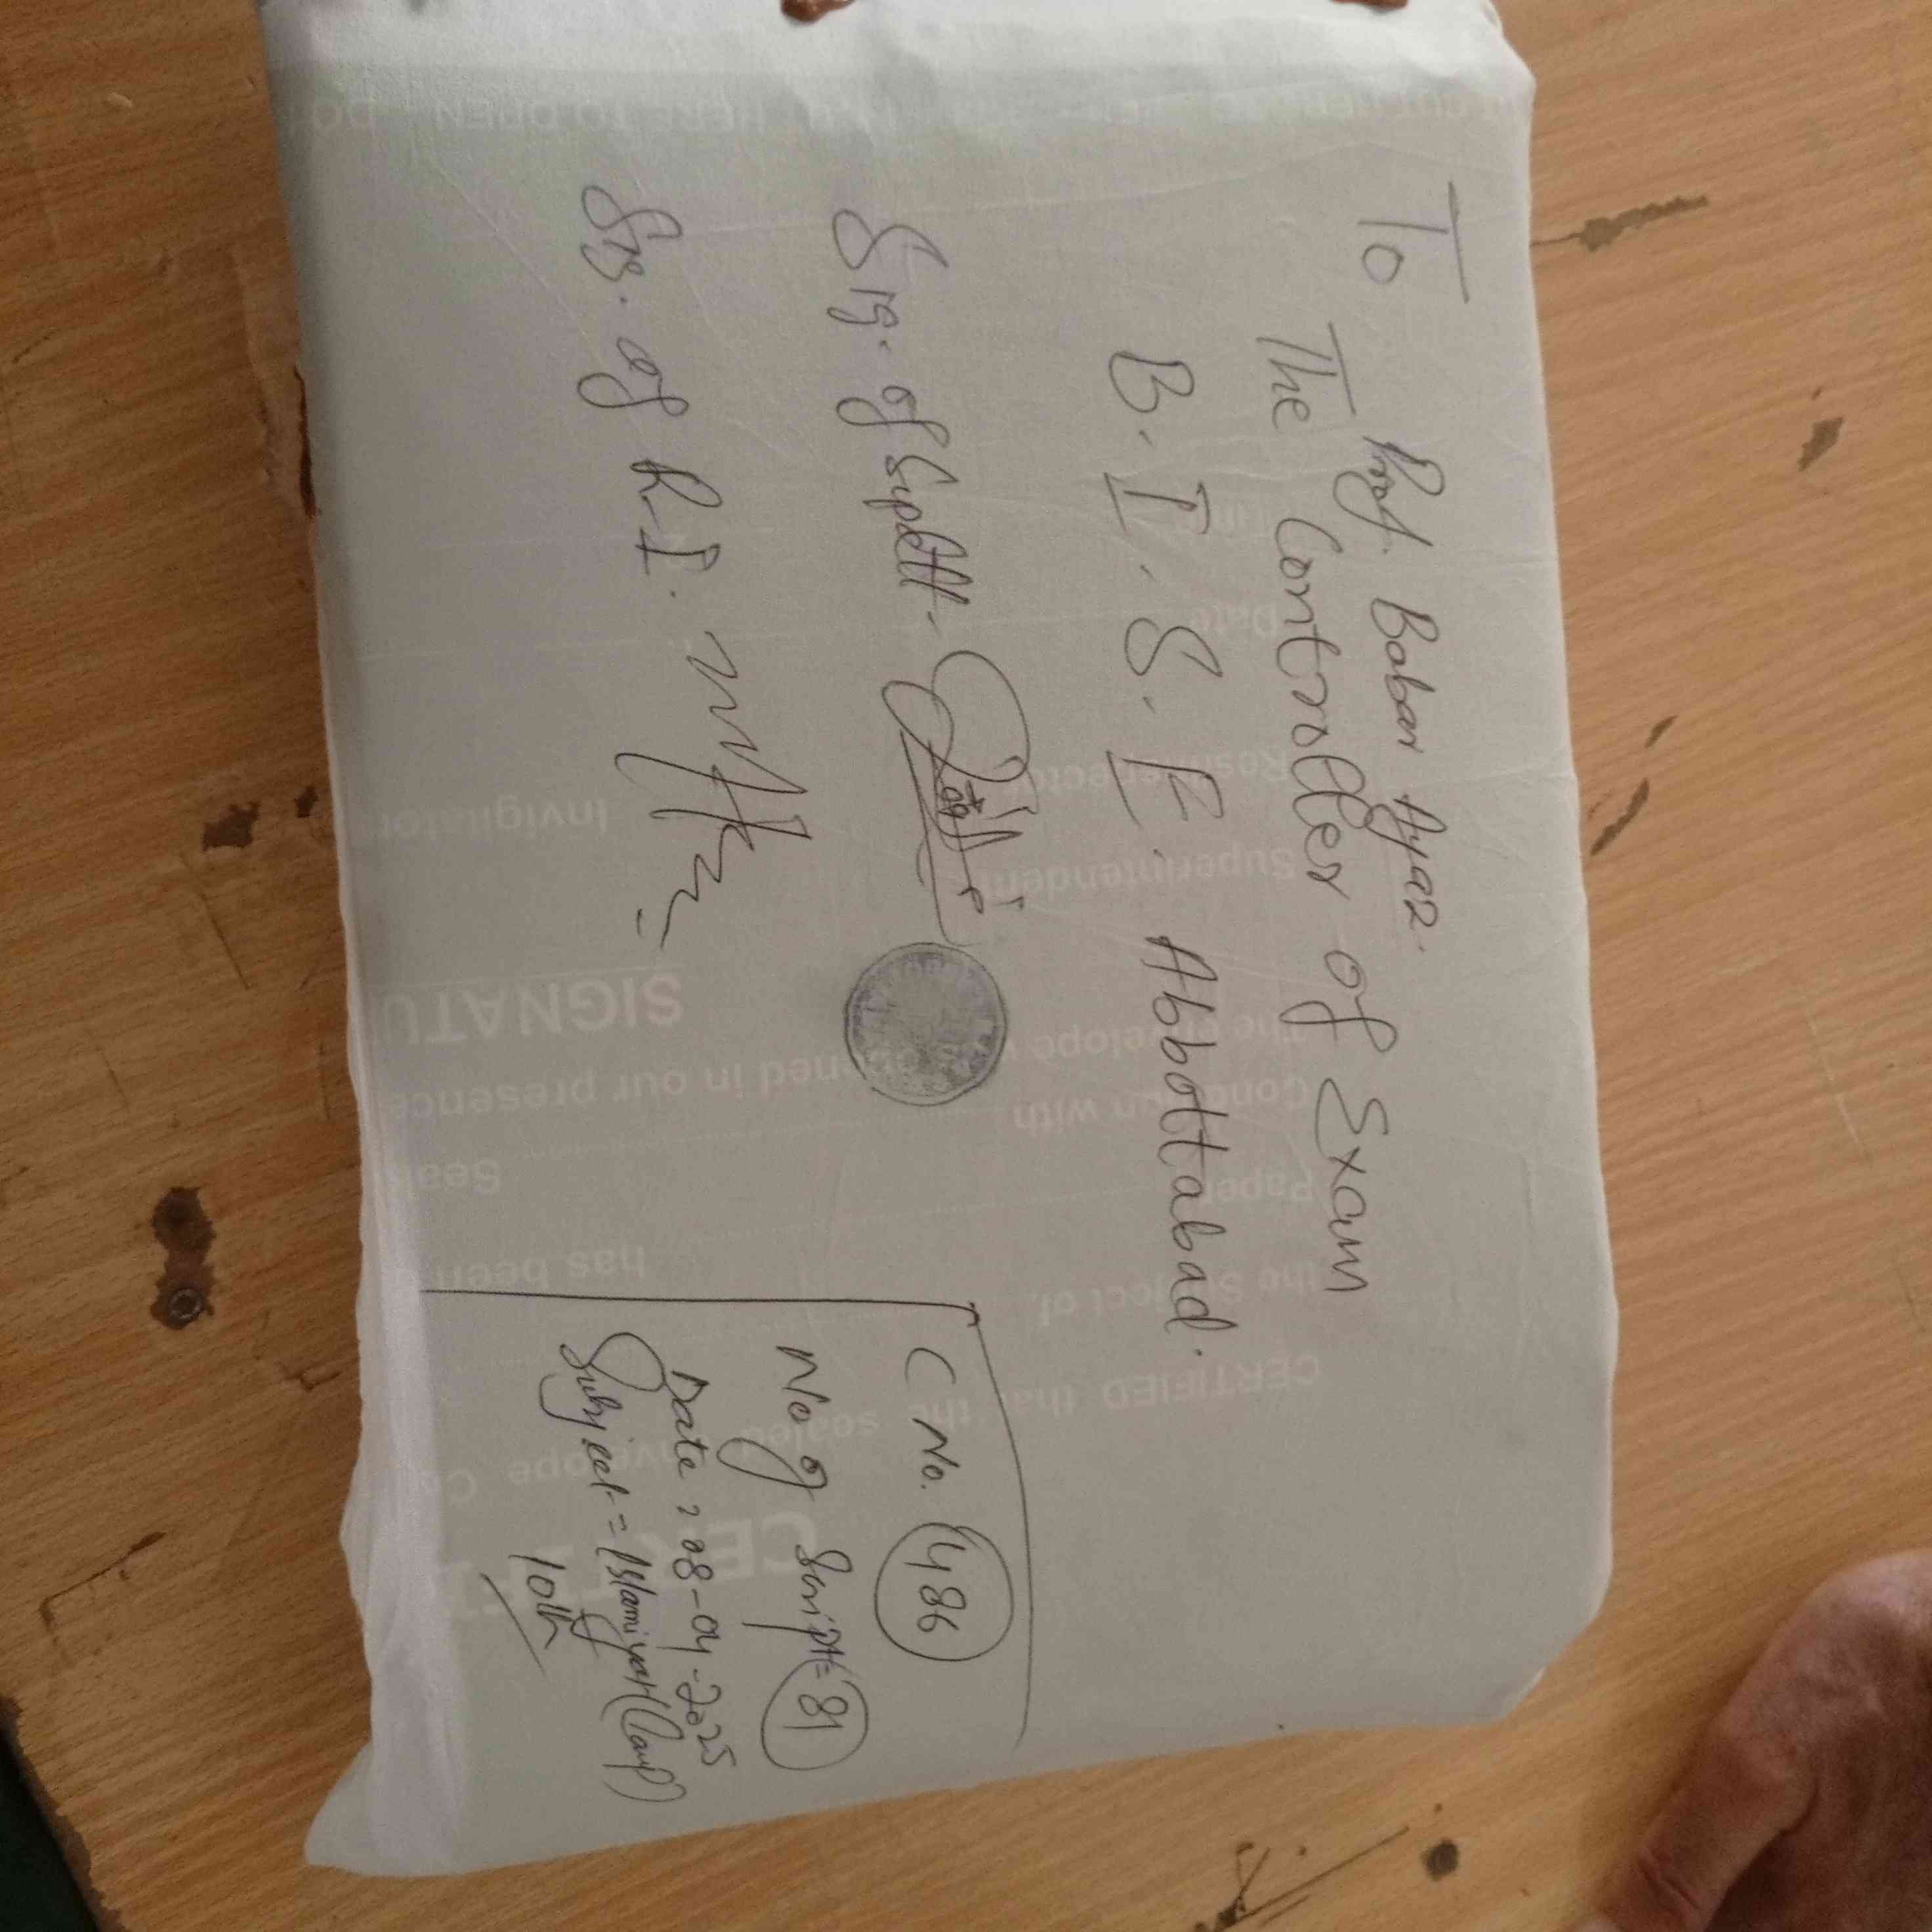 To
Prof. Babar Ayaz.
The Controller of Exam
B. I. S. E. Abbottabad.
Sig. of Supdtt-
Sig. of R.I.
C No. 486
No of Script = 81
Date : 08-04-2025
Subject = Islamiyat (Comp)
10th
CERTIFIED that the sealed envelope
the Subject of
has been
Paper
Seals
Condition with
The envelope was opened in our presence
SIGNATU
Superintendent
Invigilator
Date
HERE TO OPEN